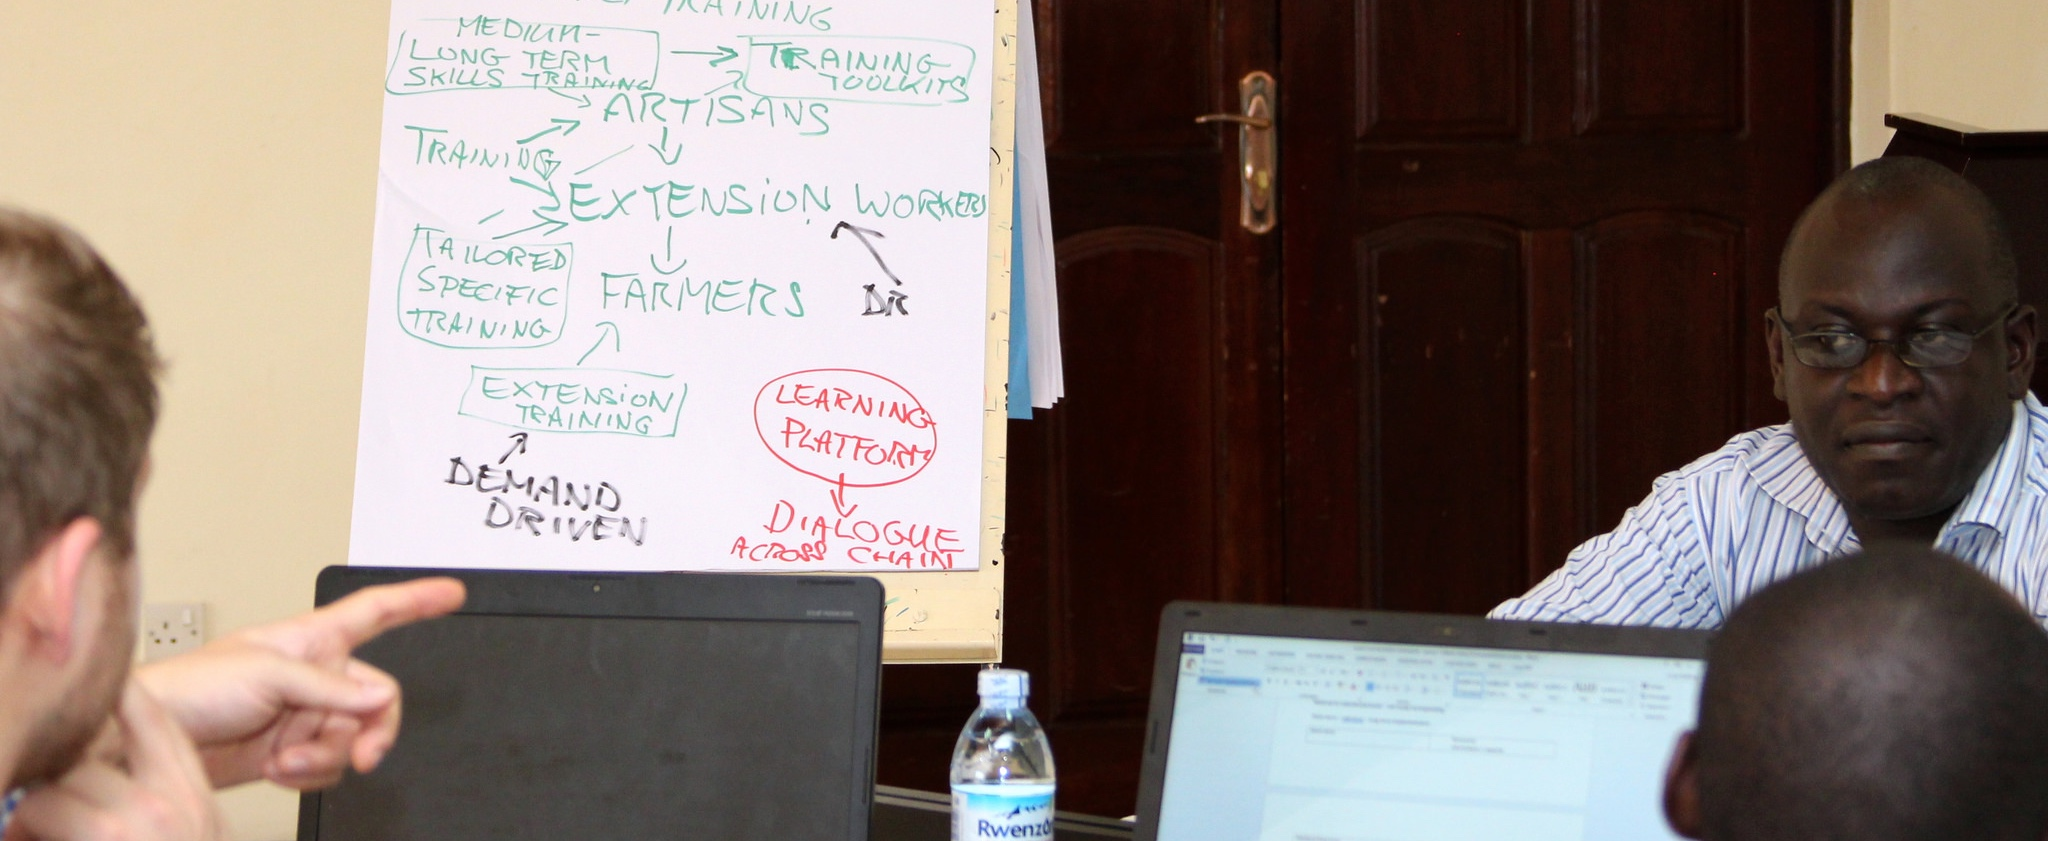 TRAINING
MEDIUM-
LONG TERM
SKILLS TRAINING
TRAINING
TOOLKITS
ARTISANS
TRAINING
EXTENSION WORKERS
TAILORED
SPECIFIC
TRAINING
FARMERS
DR
EXTENSION
TRAINING
DEMAND
DRIVEN
LEARNING
PLATFORM
DIALOGUE
ACROSS CHAIN
Rwenzo